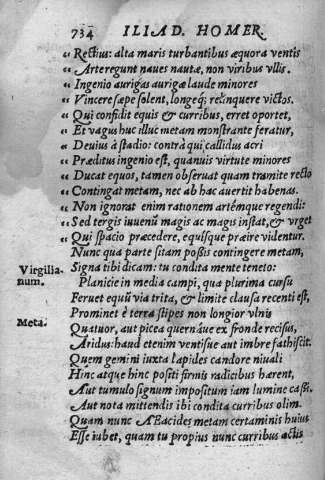 734 ILIAD. HOMER.
“ Rectius: alta maris turbantibus æquora ventis
“ Arte regunt naues nautæ, non viribus vllis.
“ Ingenio aurigas aurigæ laude minores
“ Vincere sæpe solent, longeq; relinquere victos.
“ Qui confidit equis & curribus, erret oportet,
“ Et vagus huc illuc metam monstrante feratur,
“ Deuius à stadio: contrà qui callidus acri
“ Præditus ingenio est, quanuis virtute minores
“ Ducat equos, tamen obseruat quam tramite recto
“ Contingat metam, nec ab hac auertit habenas.
“ Non ignorat enim rationem artémque regendi:
“ Sed tergis iuuenũ magis ac magis instat, & vrget
“ Qui spacio præcedere, equísque præire videntur.
Nunc qua parte sitam possis contingere metam,
Virgilianum. Signa tibi dicam: tu condita mente teneto:
Planicie in media campi, qua plurima cursu
Feruet equũ via trita, & limite clausa recenti est,
Meta. Prominet è terra stipes non longior vlnis
Quatuor, aut picea quernáue ex fronde recisus,
Aridus: haud etenim ventisue aut imbre fathiscit.
Quem gemini iuxta lapides candore niuali
Hinc atque hinc positi firmis radicibus hærent,
Aut tumulo signum impositum iam lumine cassi.
Aut nota mittendis ibi condita curribus olim.
Quam nunc Æacides metam certaminis huius
Esse iubet, quam tu propius nunc curribus actis